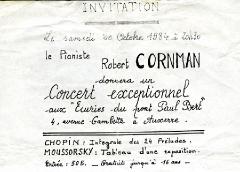 INVITATION
Le samedi 20 Octobre 1984 à 20h30
le Pianiste
Robert CORNMAN
donnera un
Concert exceptionnel
aux "Ecuries du pont Paul Bert"
4, avenue Gambetta à Auxerre.
CHOPIN: Integrale des 24 Préludes.
MOUSSORSKY: Tableau d'une exposition.
Entrée: 50F. - Gratuit jusqu'à 16 ans -